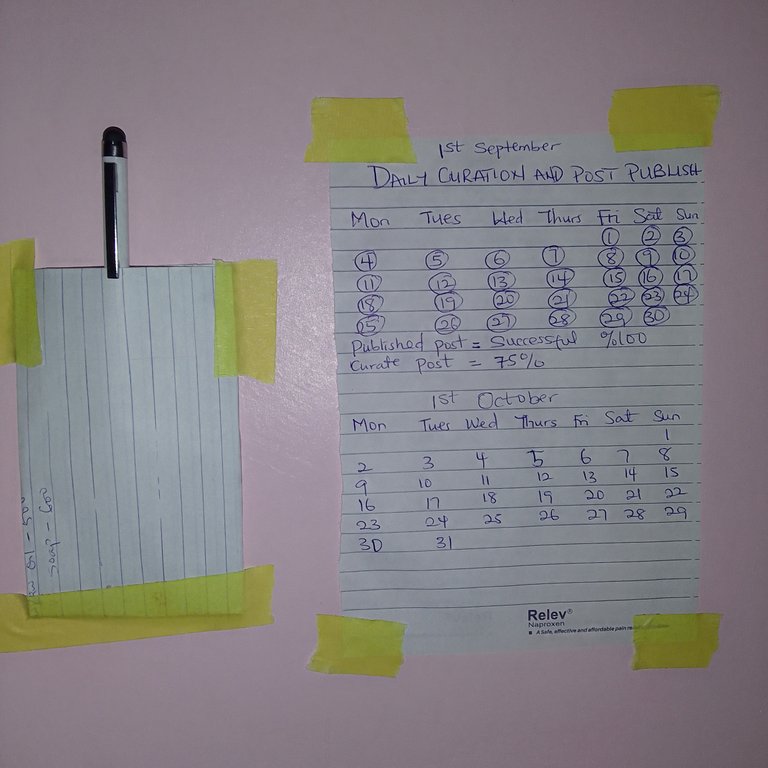 1st September
DAILY CURATION AND POST PUBLISH
Mon Tues Wed Thurs Fri Sat Sun
1 2 3
4 5 6 7 8 9 10
11 12 13 14 15 16 17
18 19 20 21 22 23 24
25 26 27 28 29 30
Published post = Successful %100
Curate post = 75%
1st October
Mon Tues Wed Thurs Fri Sat Sun
1
2 3 4 5 6 7 8
9 10 11 12 13 14 15
16 17 18 19 20 21 22
23 24 25 26 27 28 29
30 31
Relev®
Naproxen
A Safe, effective and affordable pain
Oil - 500
Soap - 600